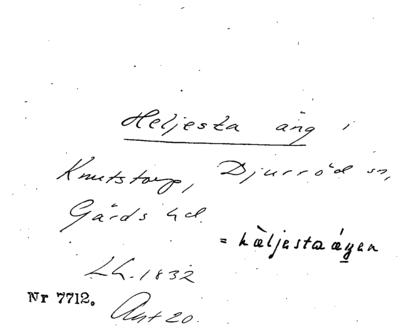 Heljesta äng i
Knutstorp, Djurröd sn,
Gärds hd.
= hàljestaáŋen
Lh. 1832
Nr 7712. Akt 20.